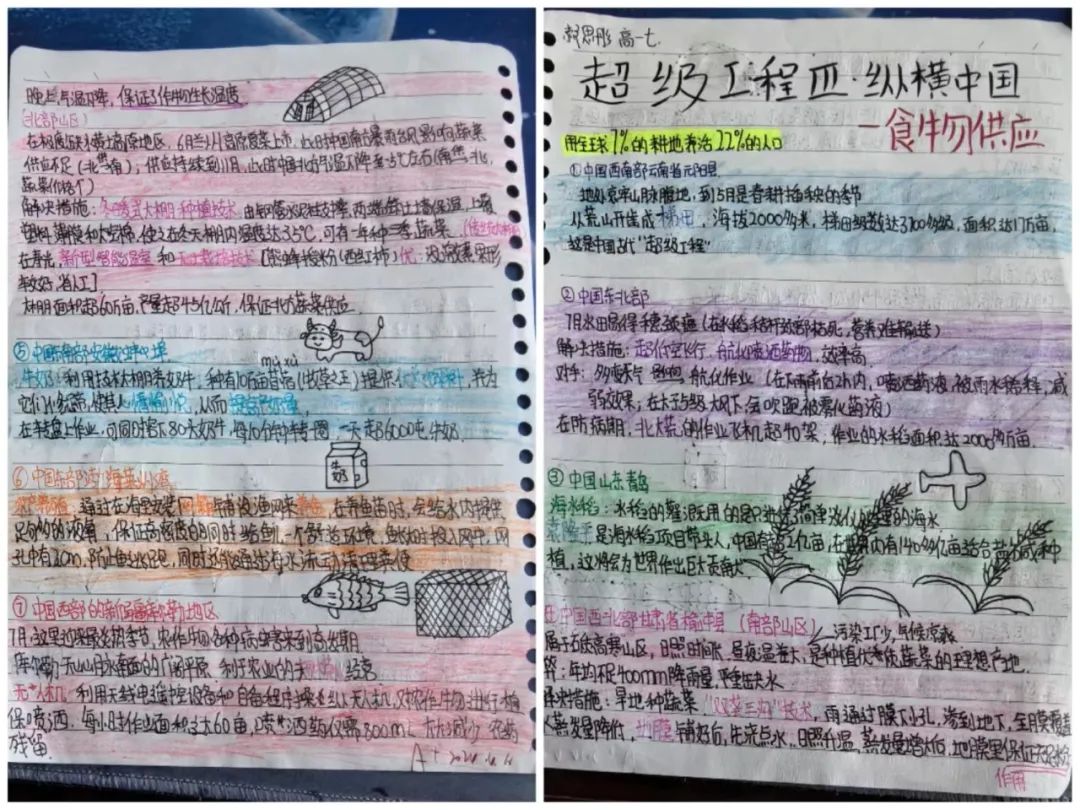 高一七
超级工程Ⅲ·纵横中国
—食物供应
用全球7%的耕地养活22%的人口
①中国西南部云南省元阳县
地处哀牢山脉腹地,到5月是春耕插秧的季节
从荒山开垦成梯田,海拔2000多米,梯田级数达3700多级,面积达17万亩,
这是中国古代"超级工程"
②中国东北部
7月水田易得穗颈瘟(在水稻秸秆颈部枯死,营养难输送)
解决措施:超低空飞行,航化喷洒药物,效率高
对手:多变天气 影响 航化作业(在大雨前后2h内,喷洒药液,被雨水稀释,减
弱效果;在大于5级大风下,会吹跑被雾化药液)
在防病期,北大荒的作业飞机超40架,作业的水稻面积达2000多万亩.
③中国山东青岛
海水稻:水稻的灌溉用的是 海水
袁隆平是海水稻项目带头人,中国有 2亿亩,在世界内有140多亿亩盐碱 种
植,这将会为世界作出巨大贡献
中国西北部甘肃省榆中县(南部山区) 污染工厂少,气候凉爽
属于 高寒山区,日照时间长,昼夜温差大,是种植优秀质蔬菜的理想产地.
年均不足400mm降雨量 严重缺水
解决措施:旱地种蔬菜"双垄三沟"技术,雨通过膜下小孔,渗到地下,全月膜覆盖
蒸发量降低,地膜铺好后,先浇点水,日照升温,蒸发量增大后,地膜里保证
作用
晚上气温下降,保证了作物生长温度
(北部山区)
在 黄土高原地区,6月兰州高原夏菜上市,此时中国南方暴雨台风影响蔬菜
供应不足(北 南),供应持续到11月,此时中国北方气温下降至5℃左右(南 北,
蔬菜价格个)
解决措施:冬暖式大棚种植技术 由钢管水泥柱支撑,两端筑土墙保温,上覆
塑料薄膜和 ,使之在冬天棚内温度达35℃,可有一年种三季蔬菜.
在寿光,新型智能温室和 技术[熊蜂授粉(西红柿)优: 果形
较好,省人工]
大棚面积超60万亩,产量超45亿公斤,保证北方蔬菜供应.
⑤中国南部安徽蚌埠
mù xu
牛奶:利用技术大棚养奶牛,种有10万亩苜蓿(牧草之王)提供 ,并为
它们 ,使其心情愉悦,从而提高产奶量,
在转盘上作业,可同时挤下80头奶牛,每10分钟转一圈 一天超600吨牛奶.
牛奶
⑥中国东部
通过在海里安装网箱与铺设渔网来养鱼,在养鱼苗时,会给水内提供
足够的液氧,保证高密度的同时给鱼一个舒适环境,鱼 投入网中,网
孔中有3cm,防止鱼出逃,同时还能通过海水流动清理粪便
⑦中国西部的新疆库尔勒地区
7月,这里迎来最炎热季节,农作物各种病虫害来到高发期.
库尔勒天山山脉南面的广阔平原,利于农业的 经营.
无人机:利用无线电遥控设备和自备程序操纵无人机,对农作物进行植
保喷洒,每小时作业面积达60亩,喷洒药仅需800mL 大大减少农药
残留.
A+